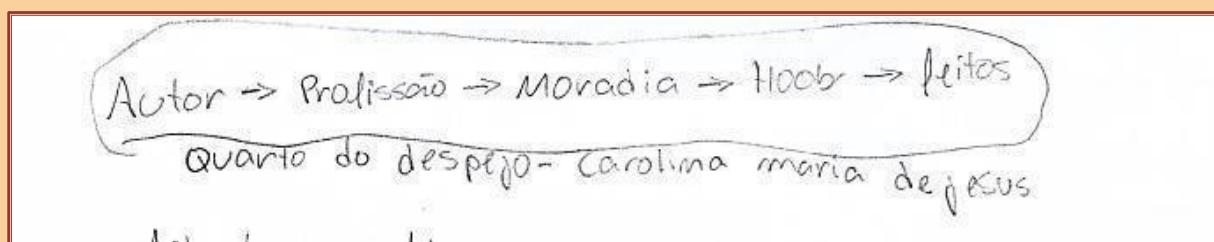 Autor → Profissão → Moradia → Hoob → feitos
Quarto do despejo - Carolina maria de jesus